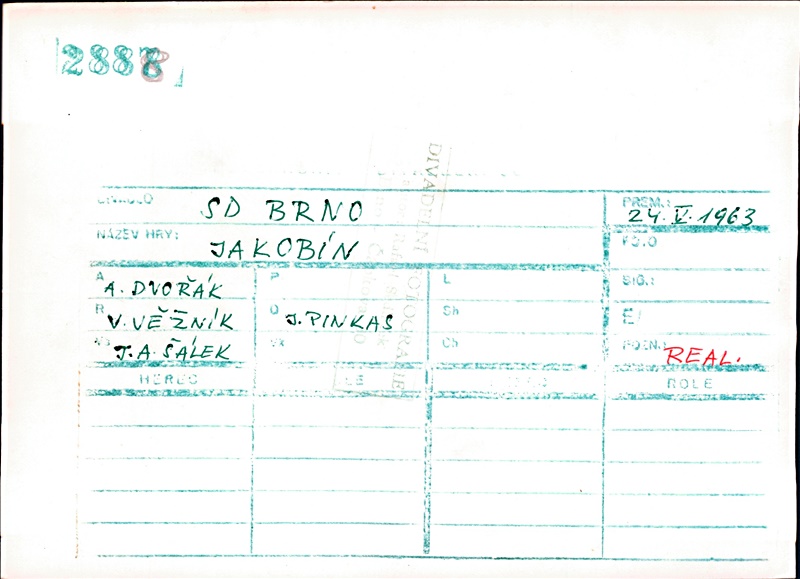 2888
DIVADLO SD BRNO PREM.: 24.V.1963
NÁZEV HRY: JAKOBÍN
A A. DVOŘÁK P L
R V. VĚŽNÍK D J. PINKAS Sh
J.A. ŠÁLEK Vk Ch
REAL.
HEREC ROLE
DIVADELNÍ FOTOGRAFIE